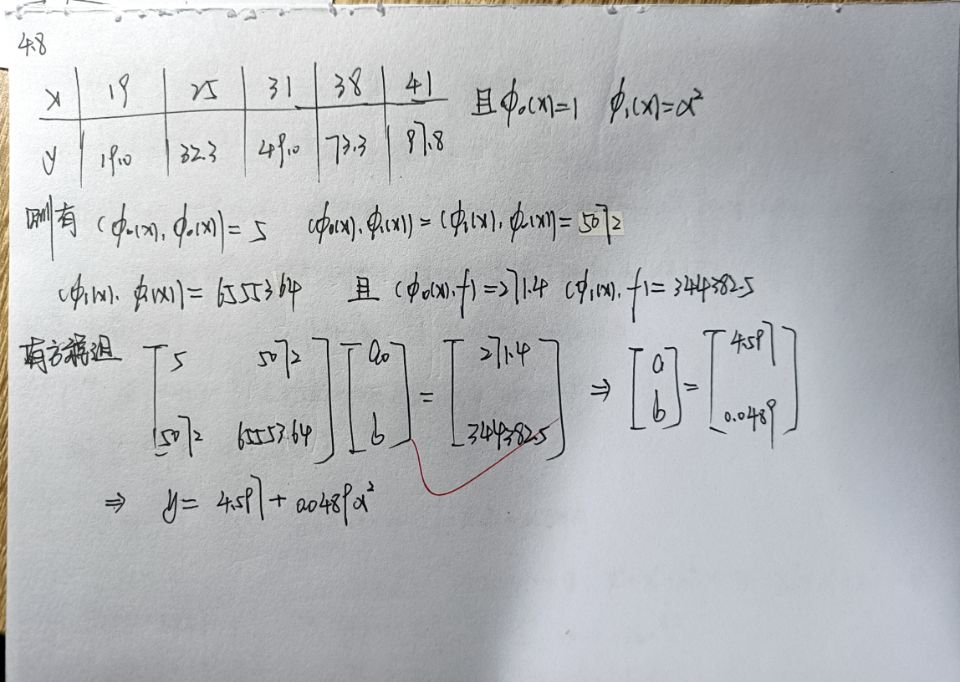 4.8
x 19 25 31 38 41
y 19.0 32.3 49.0 73.3 97.8
且 ϕ₀(x)=1 ϕ₁(x)=x²
则有 (ϕ₀(x), ϕ₀(x))=5 (ϕ₀(x), ϕ₁(x))=(ϕ₁(x), ϕ₀(x))=5072
(ϕ₁(x), ϕ₁(x))=6555364 且 (ϕ₀(x), f)=271.4 (ϕ₁(x), f)=344382.5
有方程组 [5 5072 [a₀ = [271.4 ⇒ [a = [4.597
5072 6555364] b] 344382.5] b] 0.0489]
⇒ y=4.597+0.0489x²